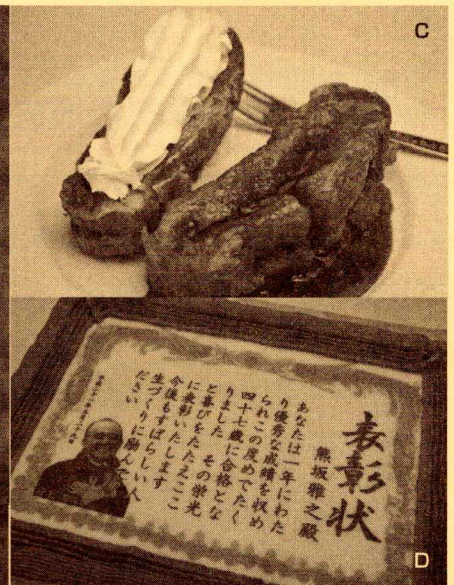 C
表彰状
熊坂雅之殿
あなたは一年にわた
り優秀な成績を収め
られこの度めでたく
四十七歳に合格とな
りました その栄光
と喜びをたたえここ
に表彰いたします
今後もすばらしい人
生づくりに励んで
ださい
D